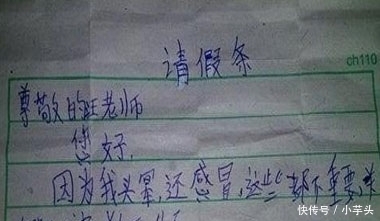 请假条
ch110
尊敬的旺老师
您好.
因为我头晕,还感冒,这些都不重要,关
快传号/小芋头